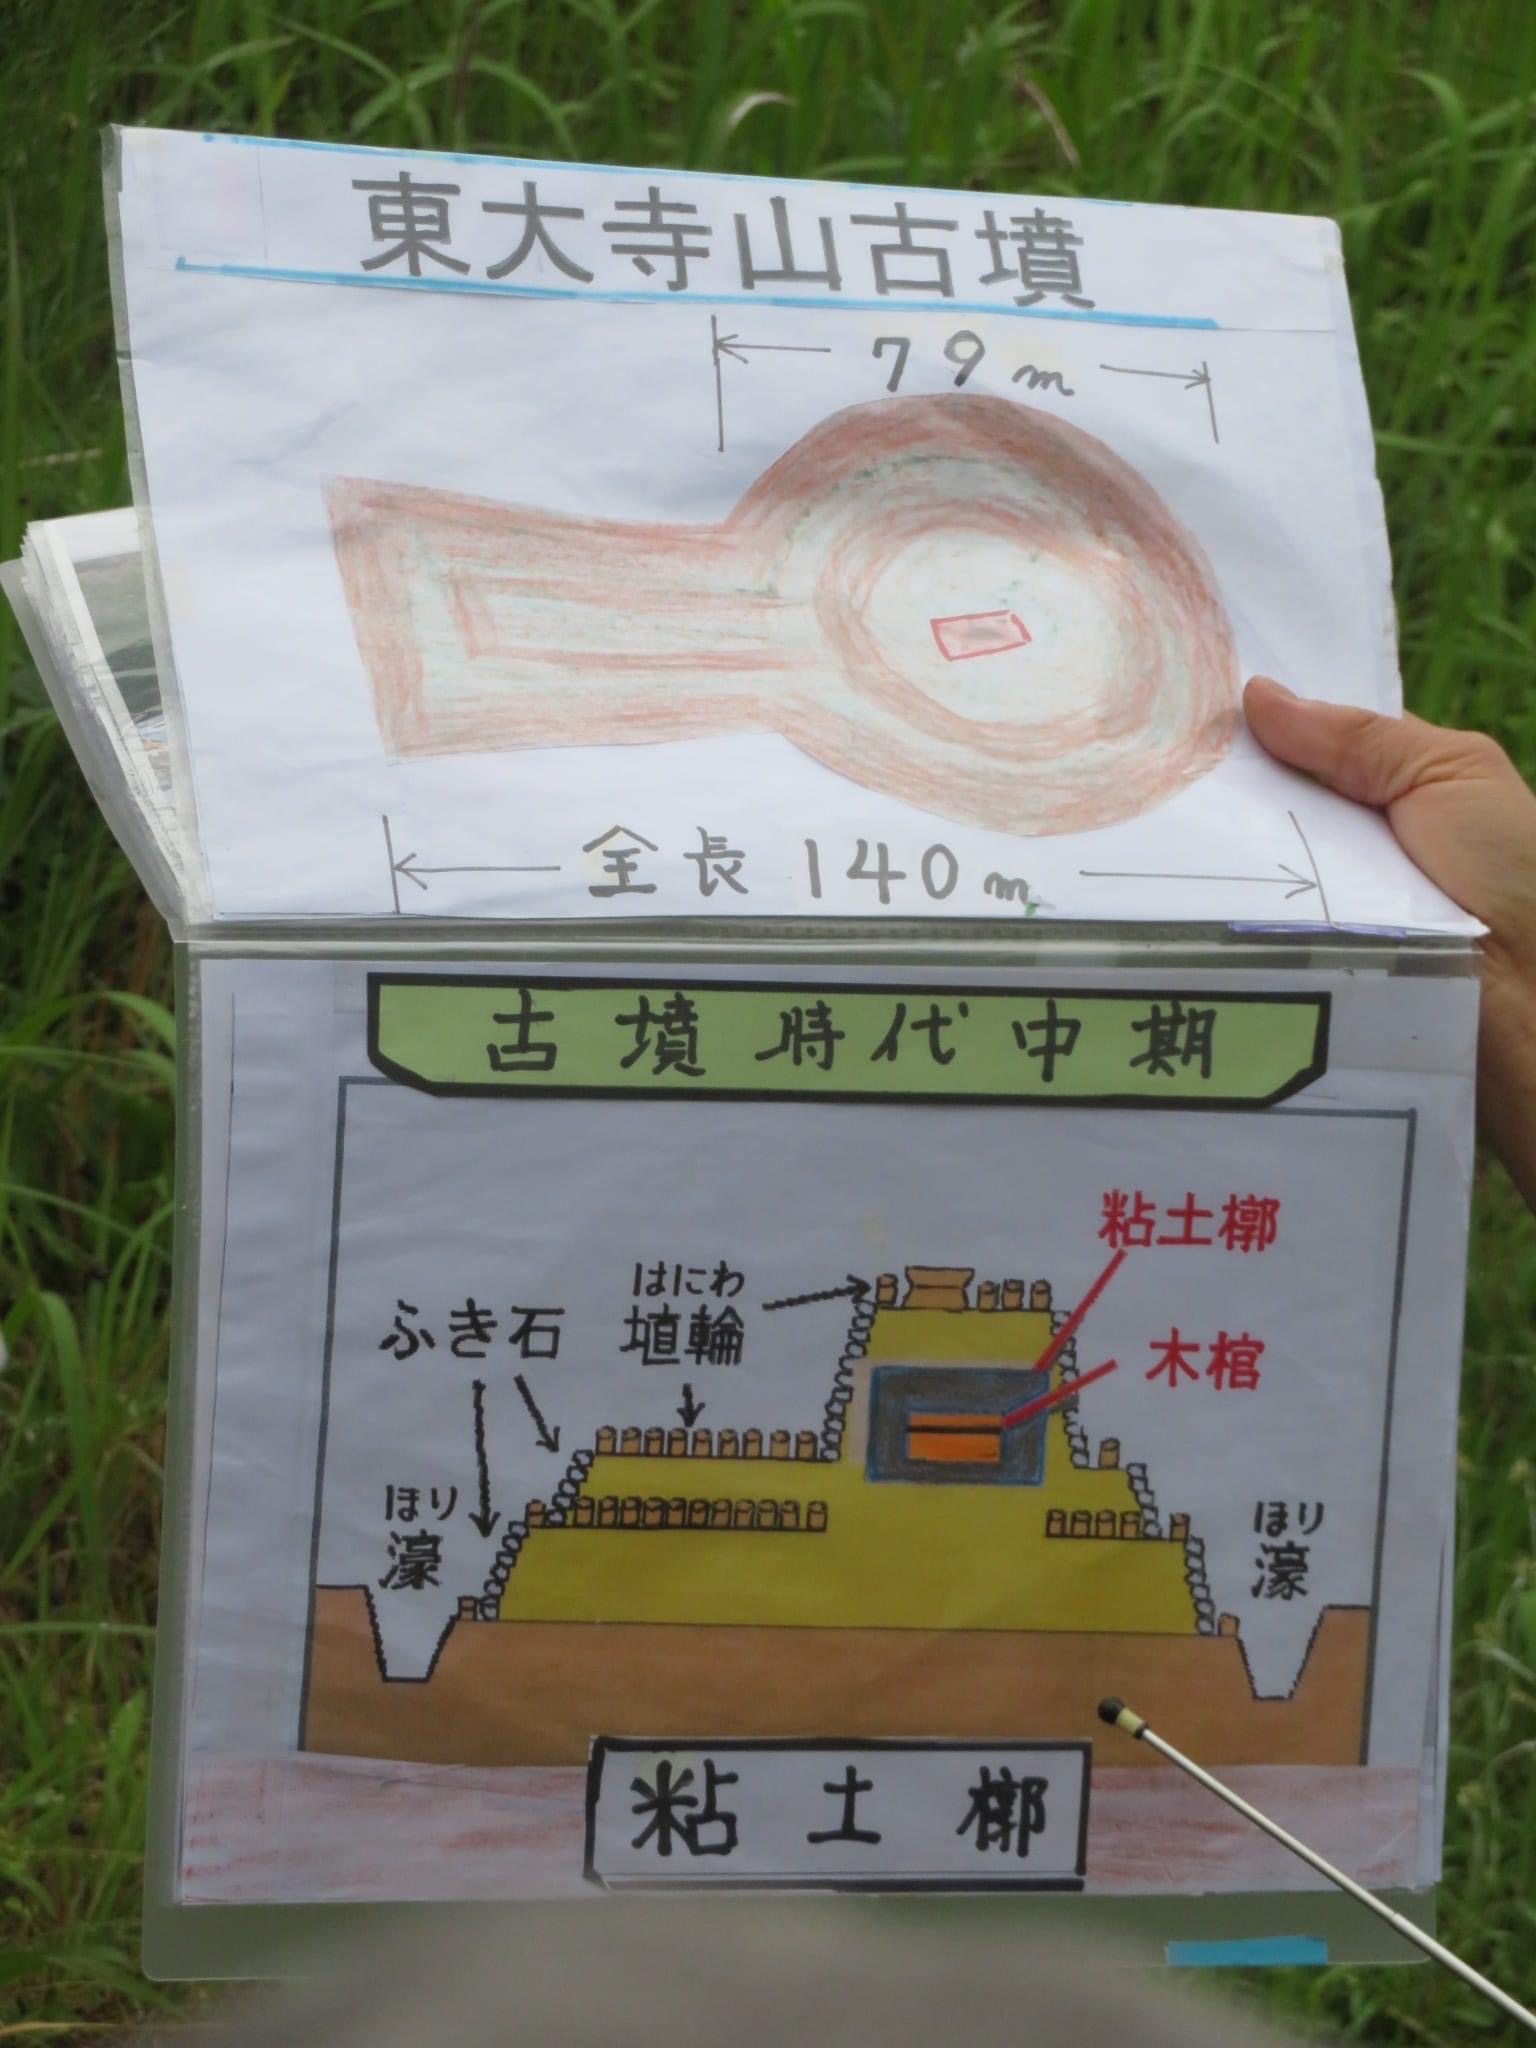 東大寺山古墳
79m
全長 140m
古墳時代中期
粘土槨
はにわ
ふき石 埴輪
木棺
ほり ほり
濠 濠
粘土槨